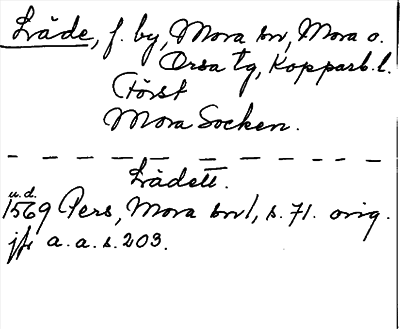 Lråde, f. by, Mora sn, Mora o.
Orsa tg, Kopparb. l.
Först
Mora Socken.
Lrådett.
u.d.
1569 Pers, Mora snl, s. 71. orig.
jfr a. a. s. 203.